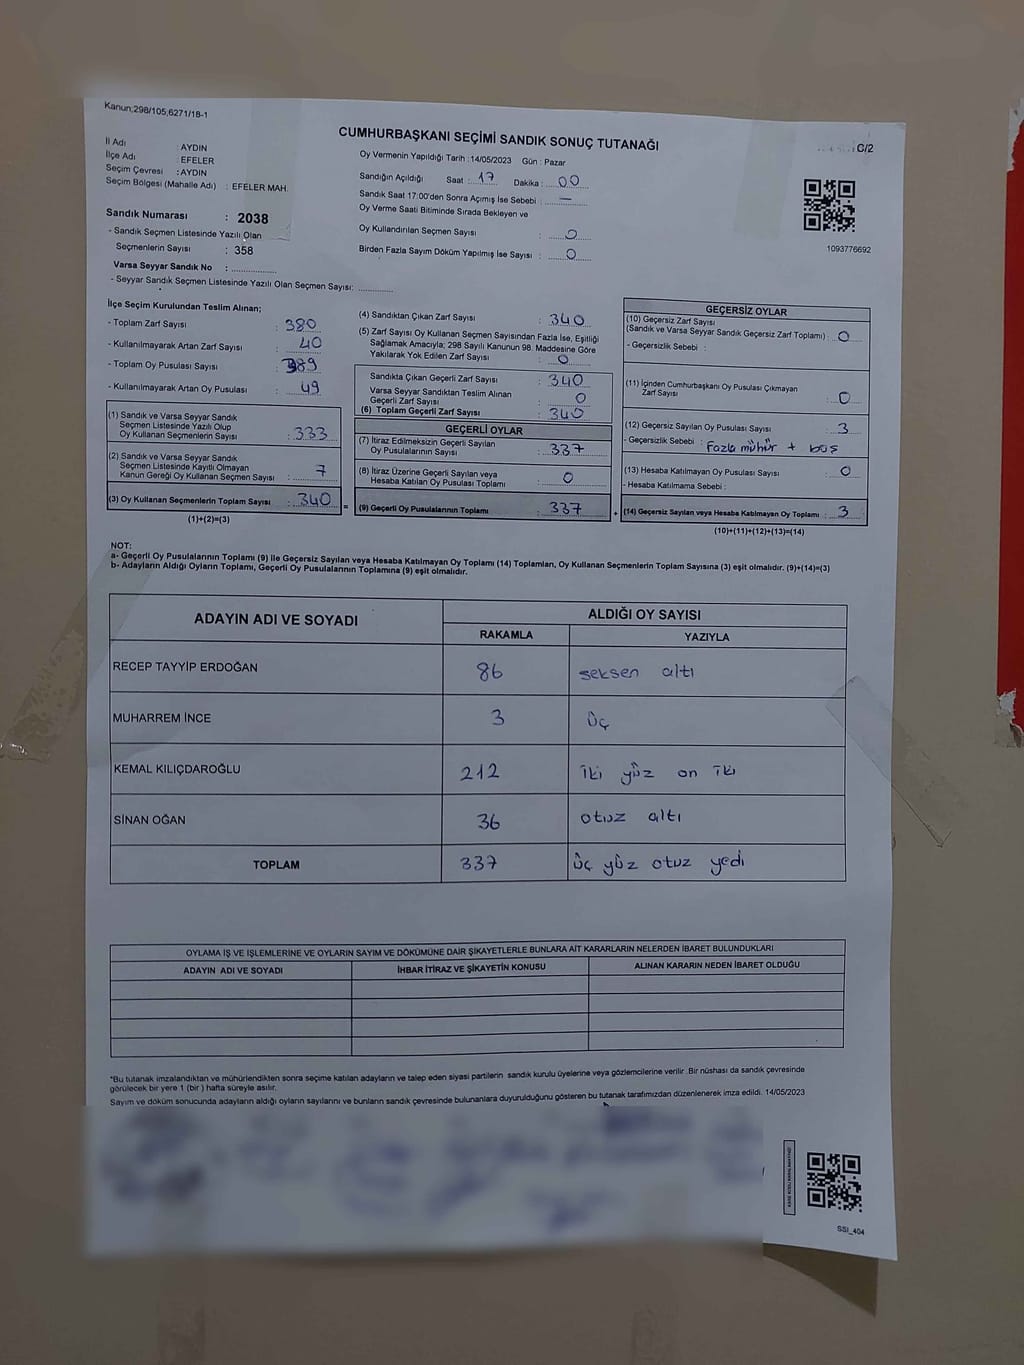 Kanun;298/105,6271/18-1
CUMHURBAŞKANI SEÇİMİ SANDIK SONUÇ TUTANAĞI
C/2
İl Adı : AYDIN
İlçe Adı : EFELER
Seçim Çevresi : AYDIN
Seçim Bölgesi (Mahalle Adı) : EFELER MAH.
Sandık Numarası : 2038
- Sandık Seçmen Listesinde Yazılı Olan
Seçmenlerin Sayısı : 358
Varsa Seyyar Sandık No :
- Seyyar Sandık Seçmen Listesinde Yazılı Olan Seçmen Sayısı:
Oy Vermenin Yapıldığı Tarih : 14/05/2023 Gün : Pazar
Sandığın Açıldığı Saat : 17 Dakika : 00
Sandık Saat 17:00'den Sonra Açımış İse Sebebi : —
Oy Verme Saati Bitiminde Sırada Bekleyen ve
Oy Kullandırılan Seçmen Sayısı : 0
Birden Fazla Sayım Döküm Yapılmış İse Sayısı : 0
1093776692
İlçe Seçim Kurulundan Teslim Alınan;
- Toplam Zarf Sayısı : 380
- Kullanılmayarak Artan Zarf Sayısı : 40
- Toplam Oy Pusulası Sayısı : 389
- Kullanılmayarak Artan Oy Pusulası : 49
(1) Sandık ve Varsa Seyyar Sandık
Seçmen Listesinde Yazılı Olup
Oy Kullanan Seçmenlerin Sayısı : 333
(2) Sandık ve Varsa Seyyar Sandık
Seçmen Listesinde Kayıtlı Olmayan
Kanun Gereği Oy Kullanan Seçmen Sayısı : 7
(3) Oy Kullanan Seçmenlerin Toplam Sayısı : 340
(1)+(2)=(3)
(4) Sandıktan Çıkan Zarf Sayısı : 340
(5) Zarf Sayısı Oy Kullanan Seçmen Sayısından Fazla İse, Eşitliği
Sağlamak Amacıyla; 298 Sayılı Kanunun 98. Maddesine Göre
Yakılarak Yok Edilen Zarf Sayısı : 0
Sandıkta Çıkan Geçerli Zarf Sayısı : 340
Varsa Seyyar Sandıktan Teslim Alınan
Geçerli Zarf Sayısı : 0
(6) Toplam Geçerli Zarf Sayısı : 340
GEÇERLİ OYLAR
(7) İtiraz Edilmeksizin Geçerli Sayılan
Oy Pusulalarının Sayısı : 337
(8) İtiraz Üzerine Geçerli Sayılan veya
Hesaba Katılan Oy Pusulası Toplamı : 0
= (9) Geçerli Oy Pusulalarının Toplamı : 337
GEÇERSİZ OYLAR
(10) Geçersiz Zarf Sayısı
(Sandık ve Varsa Seyyar Sandık Geçersiz Zarf Toplamı) : 0
- Geçersizlik Sebebi :
(11) İçinden Cumhurbaşkanı Oy Pusulası Çıkmayan
Zarf Sayısı : 0
(12) Geçersiz Sayılan Oy Pusulası Sayısı : 3
- Geçersizlik Sebebi : Fazla mühür + boş
(13) Hesaba Katılmayan Oy Pusulası Sayısı : 0
- Hesaba Katılmama Sebebi :
+ (14) Geçersiz Sayılan veya Hesaba Katılmayan Oy Toplamı : 3
(10)+(11)+(12)+(13)=(14)
NOT:
a- Geçerli Oy Pusulalarının Toplamı (9) ile Geçersiz Sayılan veya Hesaba Katılmayan Oy Toplamı (14) Toplamları, Oy Kullanan Seçmenlerin Toplam Sayısına (3) eşit olmalıdır. (9)+(14)=(3)
b- Adayların Aldığı Oyların Toplamı, Geçerli Oy Pusulalarının Toplamına (9) eşit olmalıdır.
ADAYIN ADI VE SOYADI ALDIĞI OY SAYISI
RAKAMLA YAZIYLA
RECEP TAYYİP ERDOĞAN 86 seksen altı
MUHARREM İNCE 3 üç
KEMAL KILIÇDAROĞLU 212 iki yüz on iki
SİNAN OĞAN 36 otuz altı
TOPLAM 337 üç yüz otuz yedi
OYLAMA İŞ VE İŞLEMLERİNE VE OYLARIN SAYIM VE DÖKÜMÜNE DAİR ŞİKAYETLERLE BUNLARA AİT KARARLARIN NELERDEN İBARET BULUNDUKLARI
ADAYIN ADI VE SOYADI İHBAR İTİRAZ VE ŞİKAYETİN KONUSU ALINAN KARARIN NEDEN İBARET OLDUĞU
*Bu tutanak imzalandıktan ve mühürlendikten sonra seçime katılan adayların ve talep eden siyasi partilerin sandık kurulu üyelerine veya gözlemcilerine verilir .Bir nüshası da sandık çevresinde
görülecek bir yere 1 (bir ) hafta süreyle asılır.
Sayım ve döküm sonucunda adayların aldığı oyların sayılarını ve bunların sandık çevresinde bulunanlara duyurulduğunu gösteren bu tutanak tarafımızdan düzenlenerek imza edildi. 14/05/2023
SSI_404